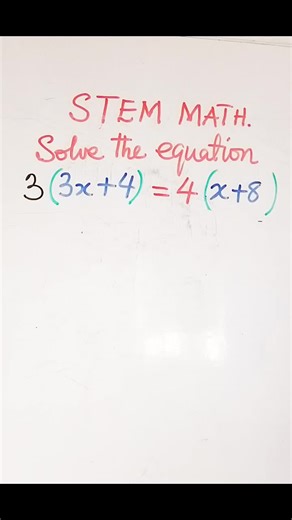 STEM MATH.
Solve the equation
3(3x+4)=4(x+8)